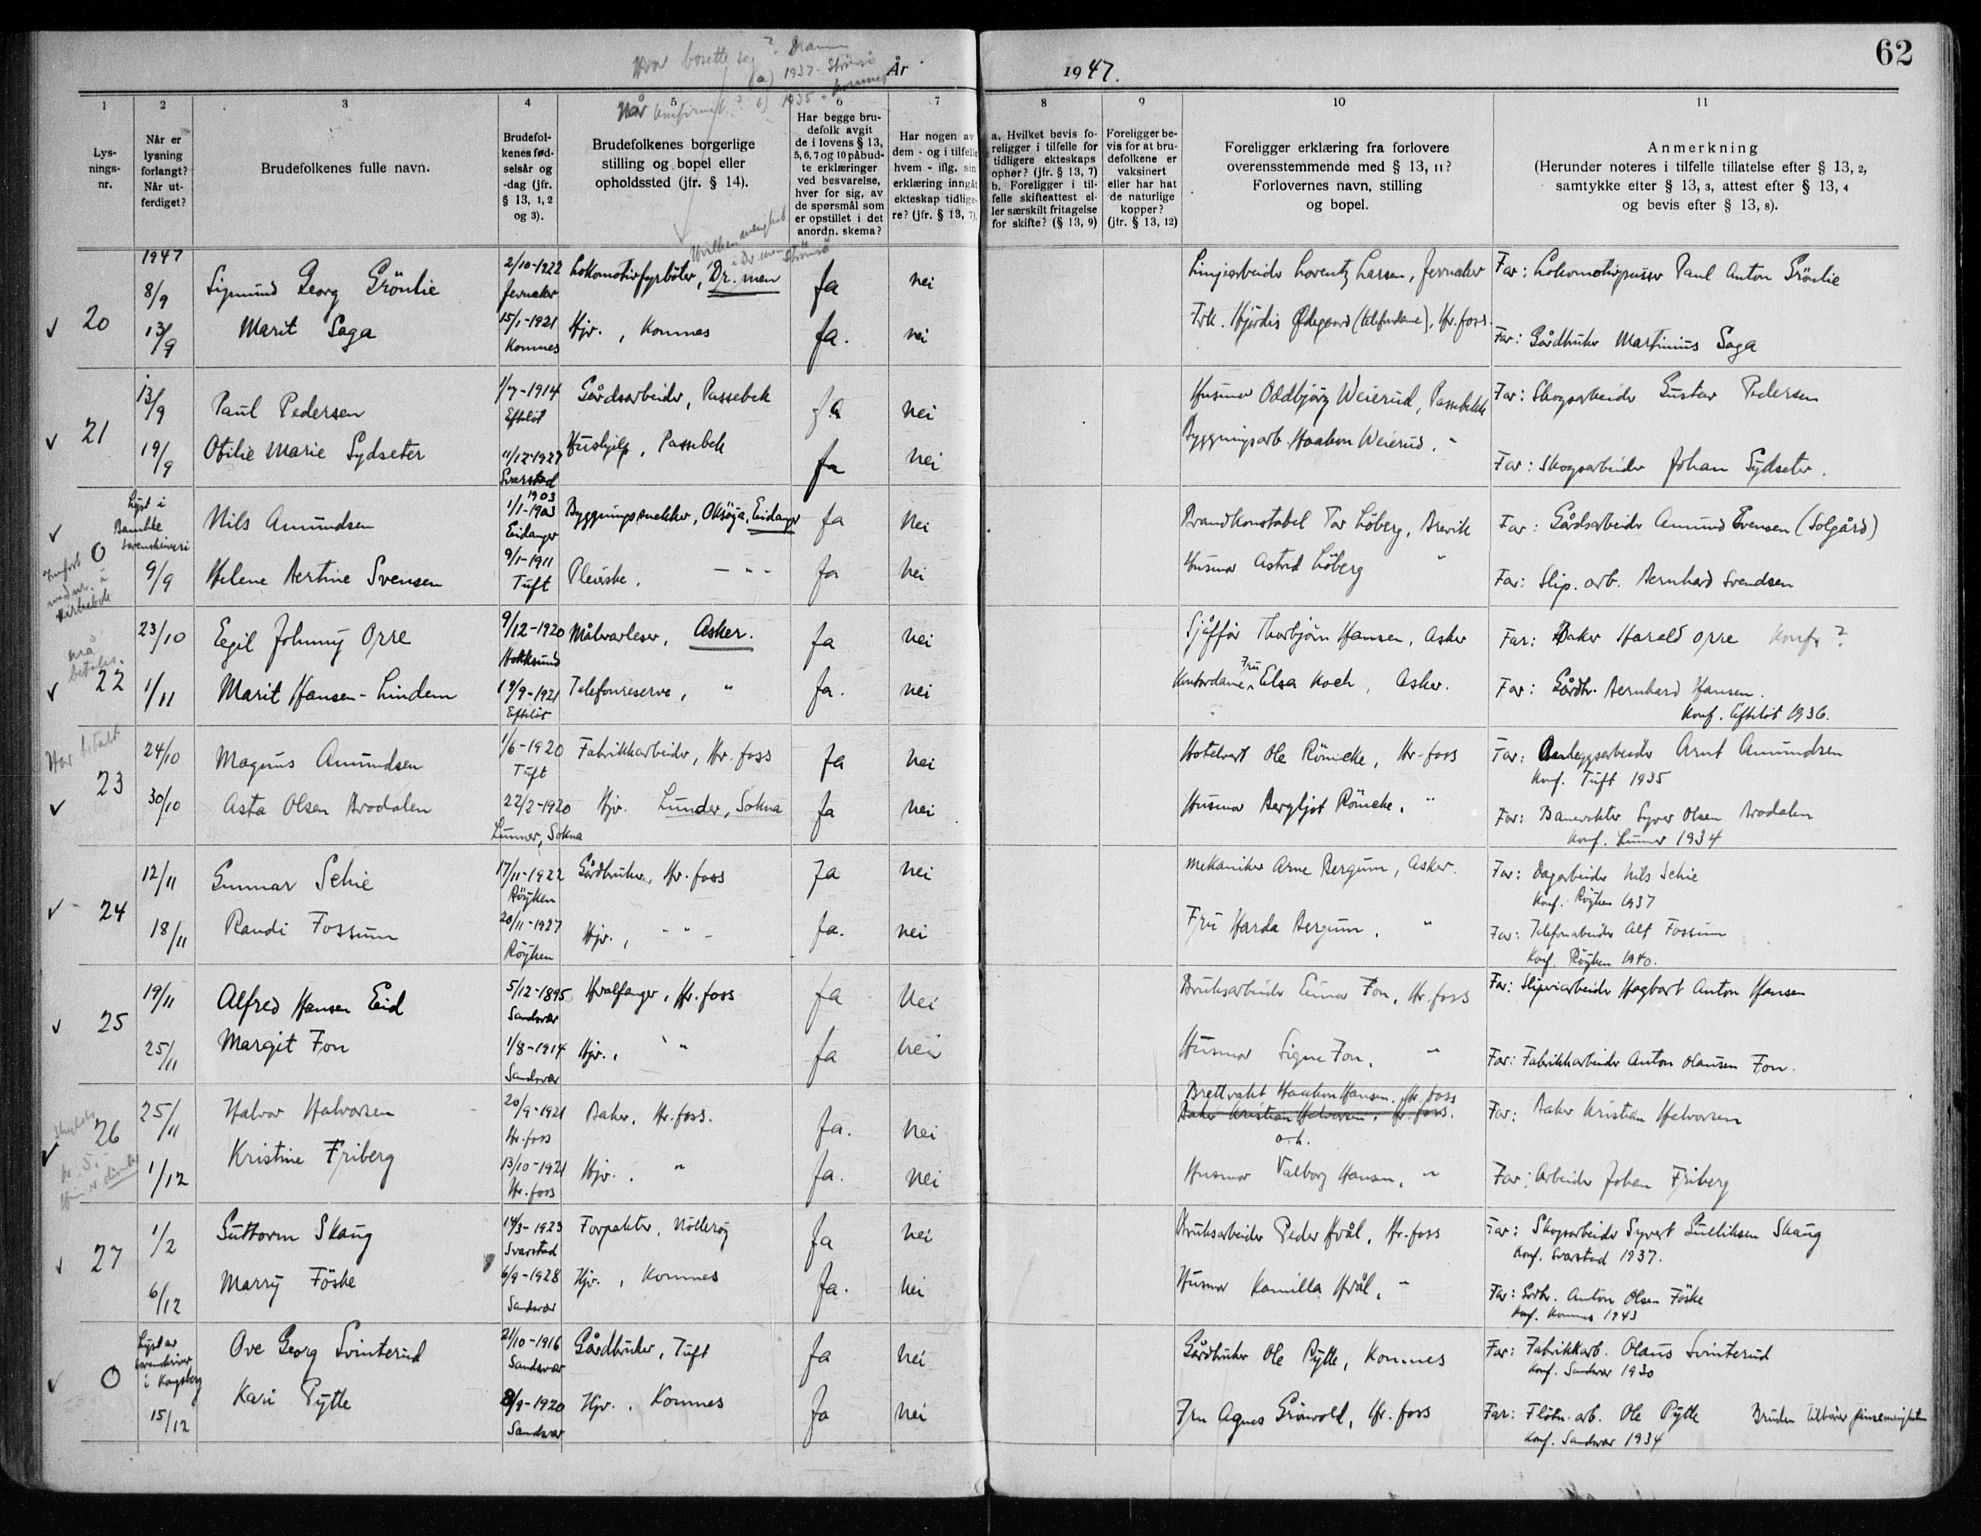 62
Hvor bosette seg? Dramm
a) 1937 - Strømsø
År 1947.
Når konfirmert? b) 1935 - Komnes
1 2 3 4 5 6 7 8 9 10 11
Lys-nings-nr.
Når er lysning forlangt? Når ut-ferdiget?
Brudefolkenes fulle navn.
Brudefol-kenes fød-selsår og -dag (jfr. § 13, 1, 2 og 3).
Brudefolkenes borgerlige stilling og bopel eller opholdssted (jfr. § 14).
Har begge bru-defolk avgit de i lovens § 13, 5, 6, 7 og 10 påbud-te erklæringer ved besvarelse, hver for sig, av de spørsmål som er opstillet i det anordn. skema?
Har nogen av dem - og i tilfelle hvem - iflg. sin erklæring inngått ekteskap tidlige-re? (jfr. § 13, 7).
a. Hvilket bevis fo-religger i tilfelle for tidligere ekteskaps ophør? (jfr. § 13, 7)
b. Foreligger i til-felle skifteattest el-ler særskilt fritagelse for skifte? (§ 13, 9)
Foreligger be-vis for at bru-defolkene er vaksinert eller har hat de naturlige kopper? (jfr. § 13, 12)
Foreligger erklæring fra forlovere overensstemmende med § 13, 11? Forlovernes navn, stilling og bopel.
Anmerkning (Herunder noteres i tilfelle tillatelse efter § 13, 2, samtykke efter § 13, 3, attest efter § 13, 4 og bevis efter § 13, 8).
Hvilken menighet i Dr.men Strømsø
1947
20 8/9 Sigmund Georg Grönlie 2/10-1922 Jevnaker Lokomotivfyrböter, Dr.men Ja nei Linjearbeider Lorentz Larsen, Jevnaker Far: Lokomotivpusser Paul Anton Grönlie
13/9 Marit Saga 15/1-1921 Komnes Hjv., Komnes Ja. nei Frk. Hjördis Ødegaard (telefondame), Hv.foss. Far: Gårdbruker Martinius Saga
21 13/9 Paul Pedersen 1/7-1914 Efteløt Gårdsarbeider, Passebek Ja nei Husmor Oddbjørg Weierud, Passebekk Far: Skogsarbeider Gustav Pedersen
19/9 Otilie Marie Sydseter 11/12-1927 Svarstad Hushjelp, Passebek Ja nei Byggningsarb. Haakon Weierud. " Far: Skogsarbeider Johan Sydseter.
Lyst i Bamble sorenskriveri Nils Amundsen 1903 1/1-1903 Eidanger Byggningssnekker, Oksöya, Eidanger Ja Nei Brandkonstabel Tor Løberg, Brevik Far: Gårdsarbeider Amund Svensen (Solgård)
O 9/9 Helene Bertine Svensen 9/1-1911 Tuft Pleierske. - " - Ja Nei Husmor Astrid Løberg " Far: Slip. arb. Bernhard Svendsen
må betales.
22 23/10 Egil Johnny Opre 9/12-1920 Hokksund Målvareleser, Asker. Ja nei Sjåfför Thorbjørn Hansen, Asker Far: Baker Harald Opre Konf. ?
1/11 Marit Hansen-Lindem 19/9-1921 Efteløt Telefonreserve, " Ja. nei Kontordame, Fru Elsa Koch, Asker. Far: Gårdbr. Bernhard Hansen.
Konf. Efteløt 1936.
Har betalt
23 24/10 Magnus Amundsen 1/6-1920 Tuft Fabrikkarbeider, Hv.foss Ja nei Hotelvert Ole Römcke, Hv.foss Far: Anleggsarbeider Arnt Amundsen
Konf. Tuft 1935
30/10 Asta Olsen Brodalen 22/2-1920 Lunner, Sokna Hjv. Lunder, Sokna Ja nei Husmor Bergljot Römcke. " Far: Banevokter Syver Olsen Brodalen
Konf. Lunner 1934
24 12/11 Gunnar Schie 17/11-1922 Röyken Gårdbruker, Hv.foss Ja nei Mekaniker Arne Bergum, Asker. Far: Dagarbeider Nils Schie
Konf. Röyken 1937
18/11 Randi Fossum 20/11-1927 Röyken Hjv., - " - Ja. nei Fru Harda Bergum. " Far: Telefonarbeider Alf Fossum
Konf. Röyken 1940.
25 19/11 Alfred Hansen Eid 5/12-1895 Sandsvær Hvalfanger, Hv.foss Ja Nei Bruksarbeider Einar Fon, Hv.foss Far: Sliperiarbeider Hagbart Anton Hansen
25/11 Margit Fon 1/8-1914 Sandsvær Hjv., " Ja nei Husmor Signe Fon. " Far: Fabrikkarbeider Anton Olausen Fon.
26 25/11 Halvor Halvorsen 20/9-1921 Hv.foss Baker, Hv.foss. Ja. nei Brettvakt Haakon Hansen, Hv.foss
Baker Kristian Halvorsen, Hv.foss. Far: Baker Kristian Halvorsen
1/12 Kristine Friberg 13/10-1921 Hv.foss Hjv. " Ja. nei Husmor Valborg Hansen, " Far: Arbeider Johan Friberg
27 1/2 Guttorm Skaug 14/3-1923 Svarstad Forpakter, Nötterøy Ja nei Bruksarbeider Peder Hvål, Hv.foss Far: Skogsarbeider Syvert Gulliksen Skaug
Konf. Svarstad 1937.
6/12 Marry Föske 6/9-1928 Sandsvær Hjv., Komnes Ja. nei Husmor Kamilla Hvål, " Far: Grdbr. Anton Olsen Föske
Konf. Komnes 1943
Lyst av sorenskriver i Kongsberg Ove Georg Svinterud 21/10-1916 Sandsvær Gårdbruker, Tuft Ja nei Gårdbruker Ole Pytte, Komnes Far: Fabrikkarb. Olaus Svinterud
Konf. Sandsvær 1930
O 15/12 Kari Pytte 8/9-1920 Sandsvær Hjv., Komnes Ja nei Fru Agnes Grönvold, Hv.foss Far: Flötn. arb. Ole Pytte Bruden tilhører pinsemenigheten
Konf. Sandsvær 1934